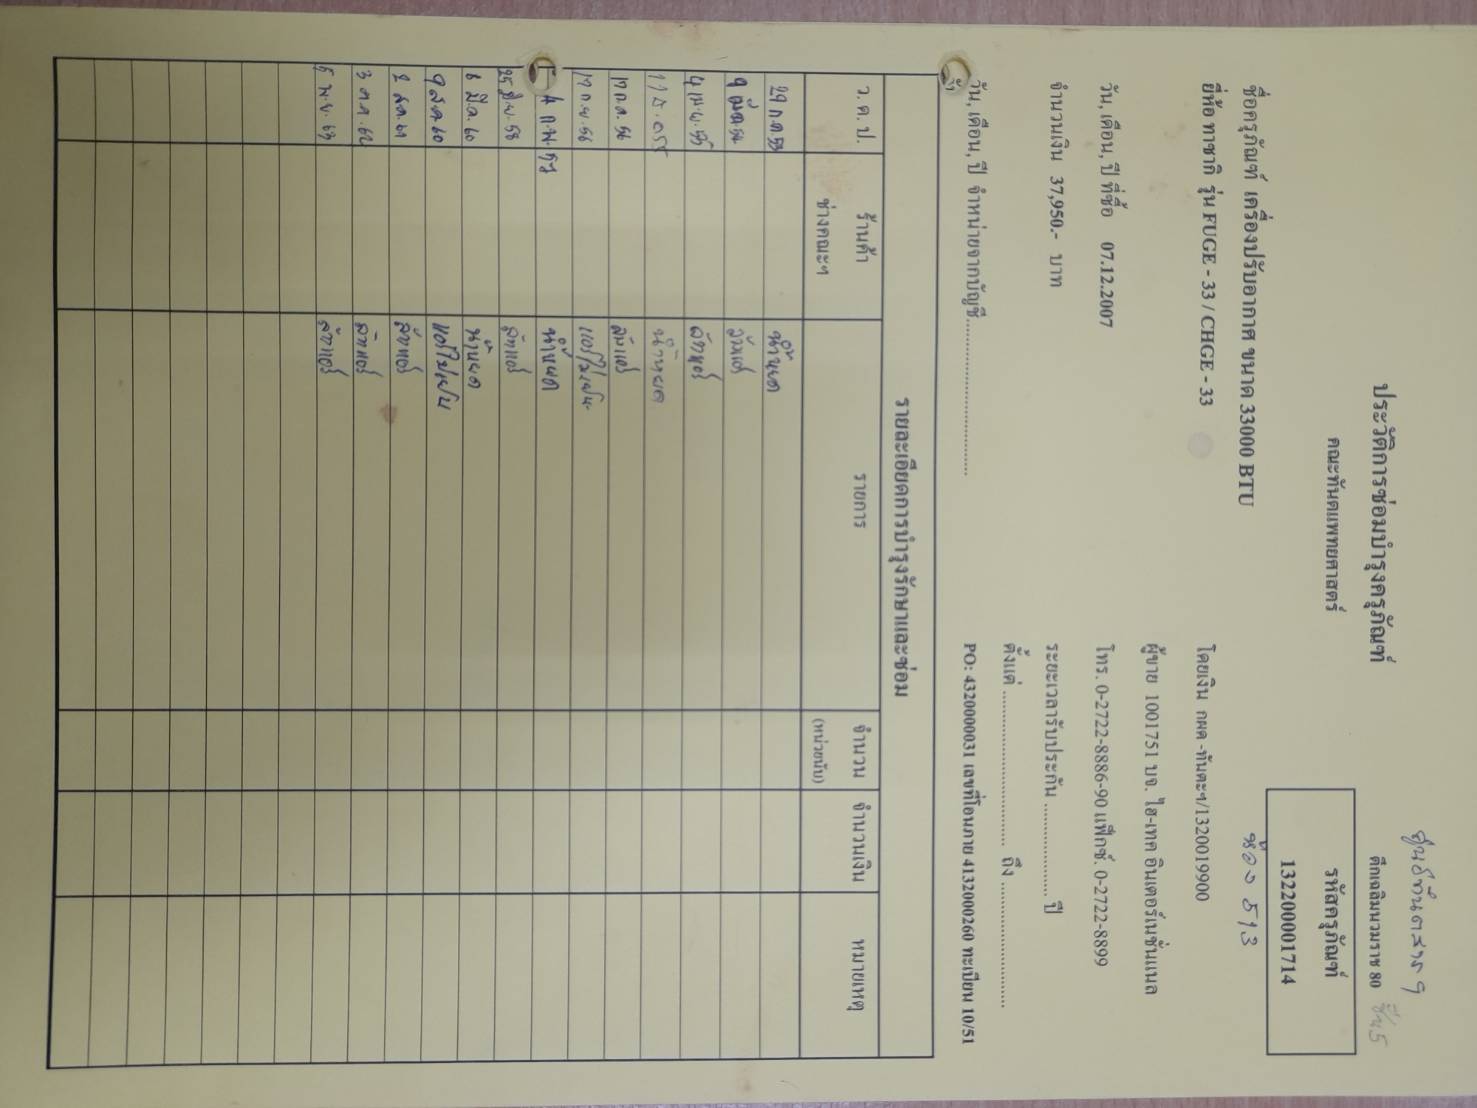 ประวัติการซ่อมบำรุงครุภัณฑ์
คณะทันตแพทยศาสตร์
ตึกเฉลิมนวมราช 80 ชั้น 5
รหัสครุภัณฑ์
132200001714
ห้อง 513
ชื่อครุภัณฑ์ เครื่องปรับอากาศ ขนาด 33000 BTU
ยี่ห้อ ทาซากิ รุ่น FUGE - 33 / CHGE - 33
โดยเงิน กผค -ทันตะฯ/1320019900
ผู้ขาย 1001751 บจ. ไฮ-เทค อินเตอร์เนชั่นแนล
วัน, เดือน, ปี ที่ซื้อ 07.12.2007
โทร. 0-2722-8886-90 แฟ็กซ์. 0-2722-8899
จำนวนเงิน 37,950.- บาท
ระยะเวลารับประกัน .................... ปี
ตั้งแต่ .............................. ถึง ..............................
วัน, เดือน, ปี จำหน่ายจากบัญชี..............................
PO: 4320000031 เลขที่โอนภาย 4132000260 ทะเบียน 10/51
รายละเอียดการบำรุงรักษาและซ่อม
ว. ด. ป. ร้านค้า รายการ จำนวน จำนวนเงิน หมายเหตุ
ช่างคณะฯ (หน่วยนับ)
29 ก.ค 53 น้ำหยด
ล้างแอร์
4 เม.ย. 55 ล้างแอร์
น้ำหยด
17 ก.ค. 56 ล้างแอร์
17 ก.ย. 56 แอร์ไม่เย็น
4 ก.พ. 57 น้ำหยด
25 มิ.ย. 58 ล้างแอร์
8 มี.ค. 60 น้ำหยด
9 ส.ค 60 แอร์ไม่เย็น
2 ส.ค. 61 ล้างแอร์
3 ต.ค. 62 ล้างแอร์
5 พ.ย. 63 ล้างแอร์